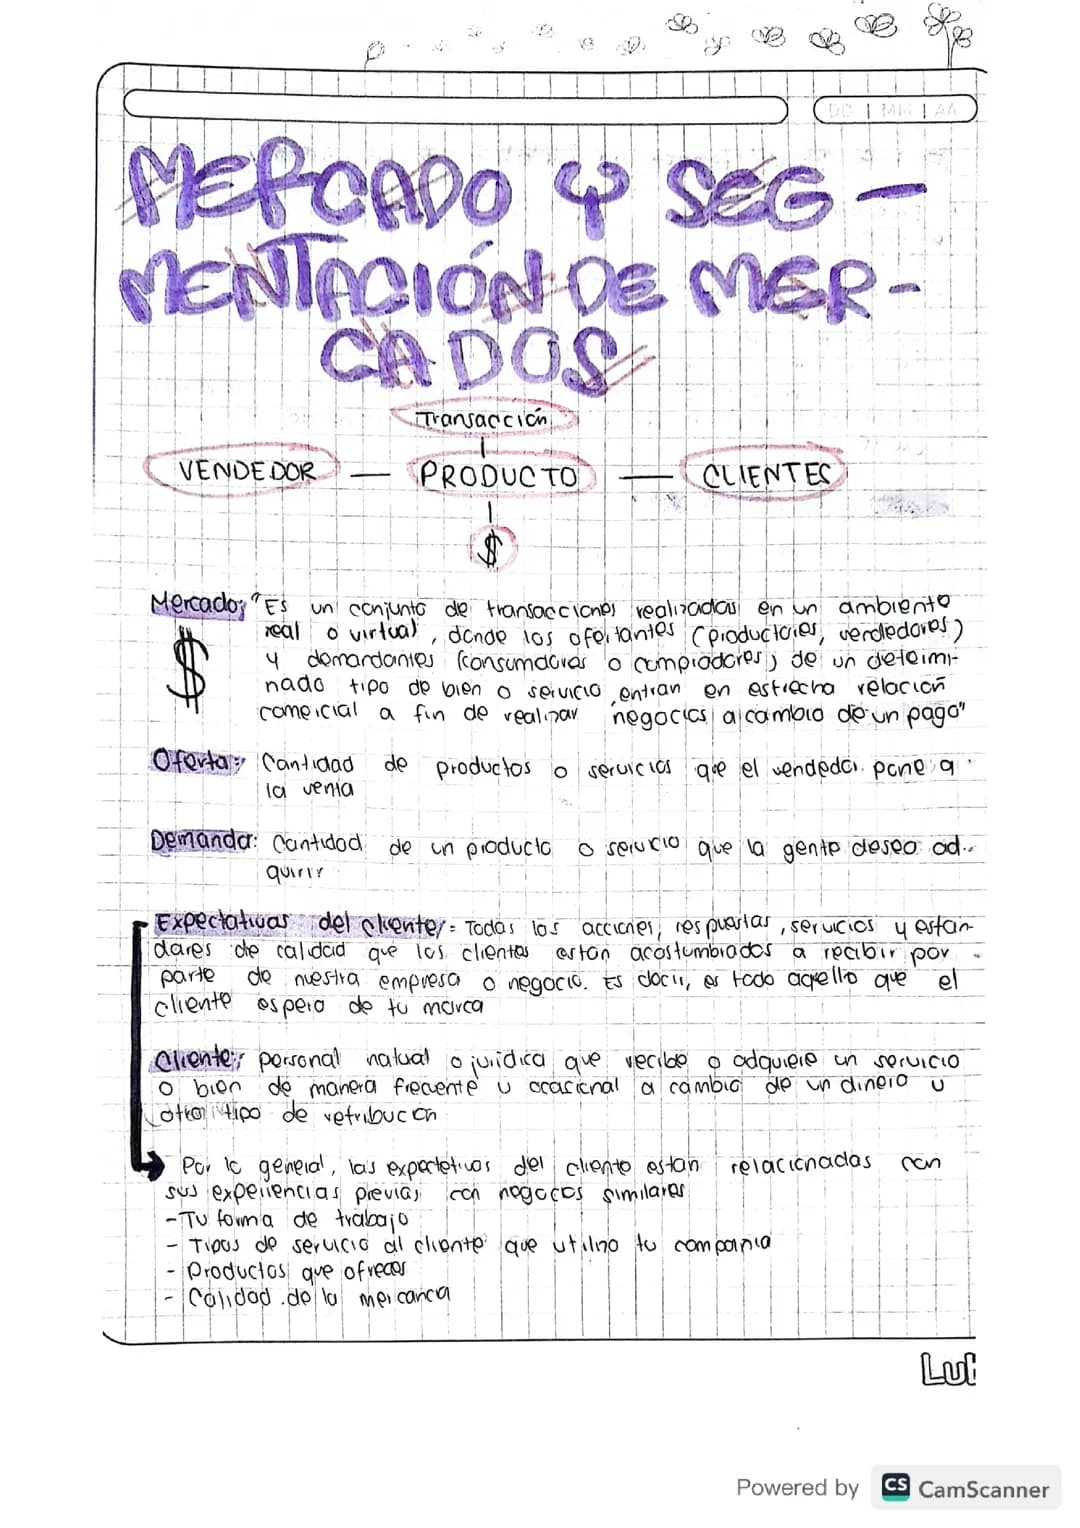 DD | MM | AA
MERCADO Y SEG -
MENTACIÓN DE MER-
CADOS
Transacción
VENDEDOR — PRODUCTO — CLIENTES
$
Mercado: "Es un conjunto de transacciones realizadas en un ambiente
real o virtual, donde los ofertantes (productores, vendedores)
$ y demandantes (consumdores o compradores) de un determi-
nado tipo de bien o servicio, entran en estrecha relación
comercial a fin de realizar negocios a cambio de un pago"
Oferta: Cantidad de productos o servicios que el vendedor pone a
la venta
Demanda: Cantidad de un producto o servicio que la gente desea ad-
quirir
Expectativas del cliente: Todas las acciones, respuestas, servicios y estan-
dares de calidad que los clientes están acostumbrados a recibir por
parte de nuestra empresa o negocio. Es decir, es todo aquello que el
cliente espera de tu marca
Cliente: personal natual o juridica que recibe o adquiere un servicio
o bien de manera frecuente u ocasional a cambio de un dinero u
otro tipo de retribucion
Por lo general, las expectetivas del cliente estan relacionadas con
sus experiencias previas con negocos similares
-Tu forma de trabajo
- Tipos de servicio al cliente que utiliza tu compania
- Productos que ofreces
- Calidad de la mercancia
Powered by CS CamScanner